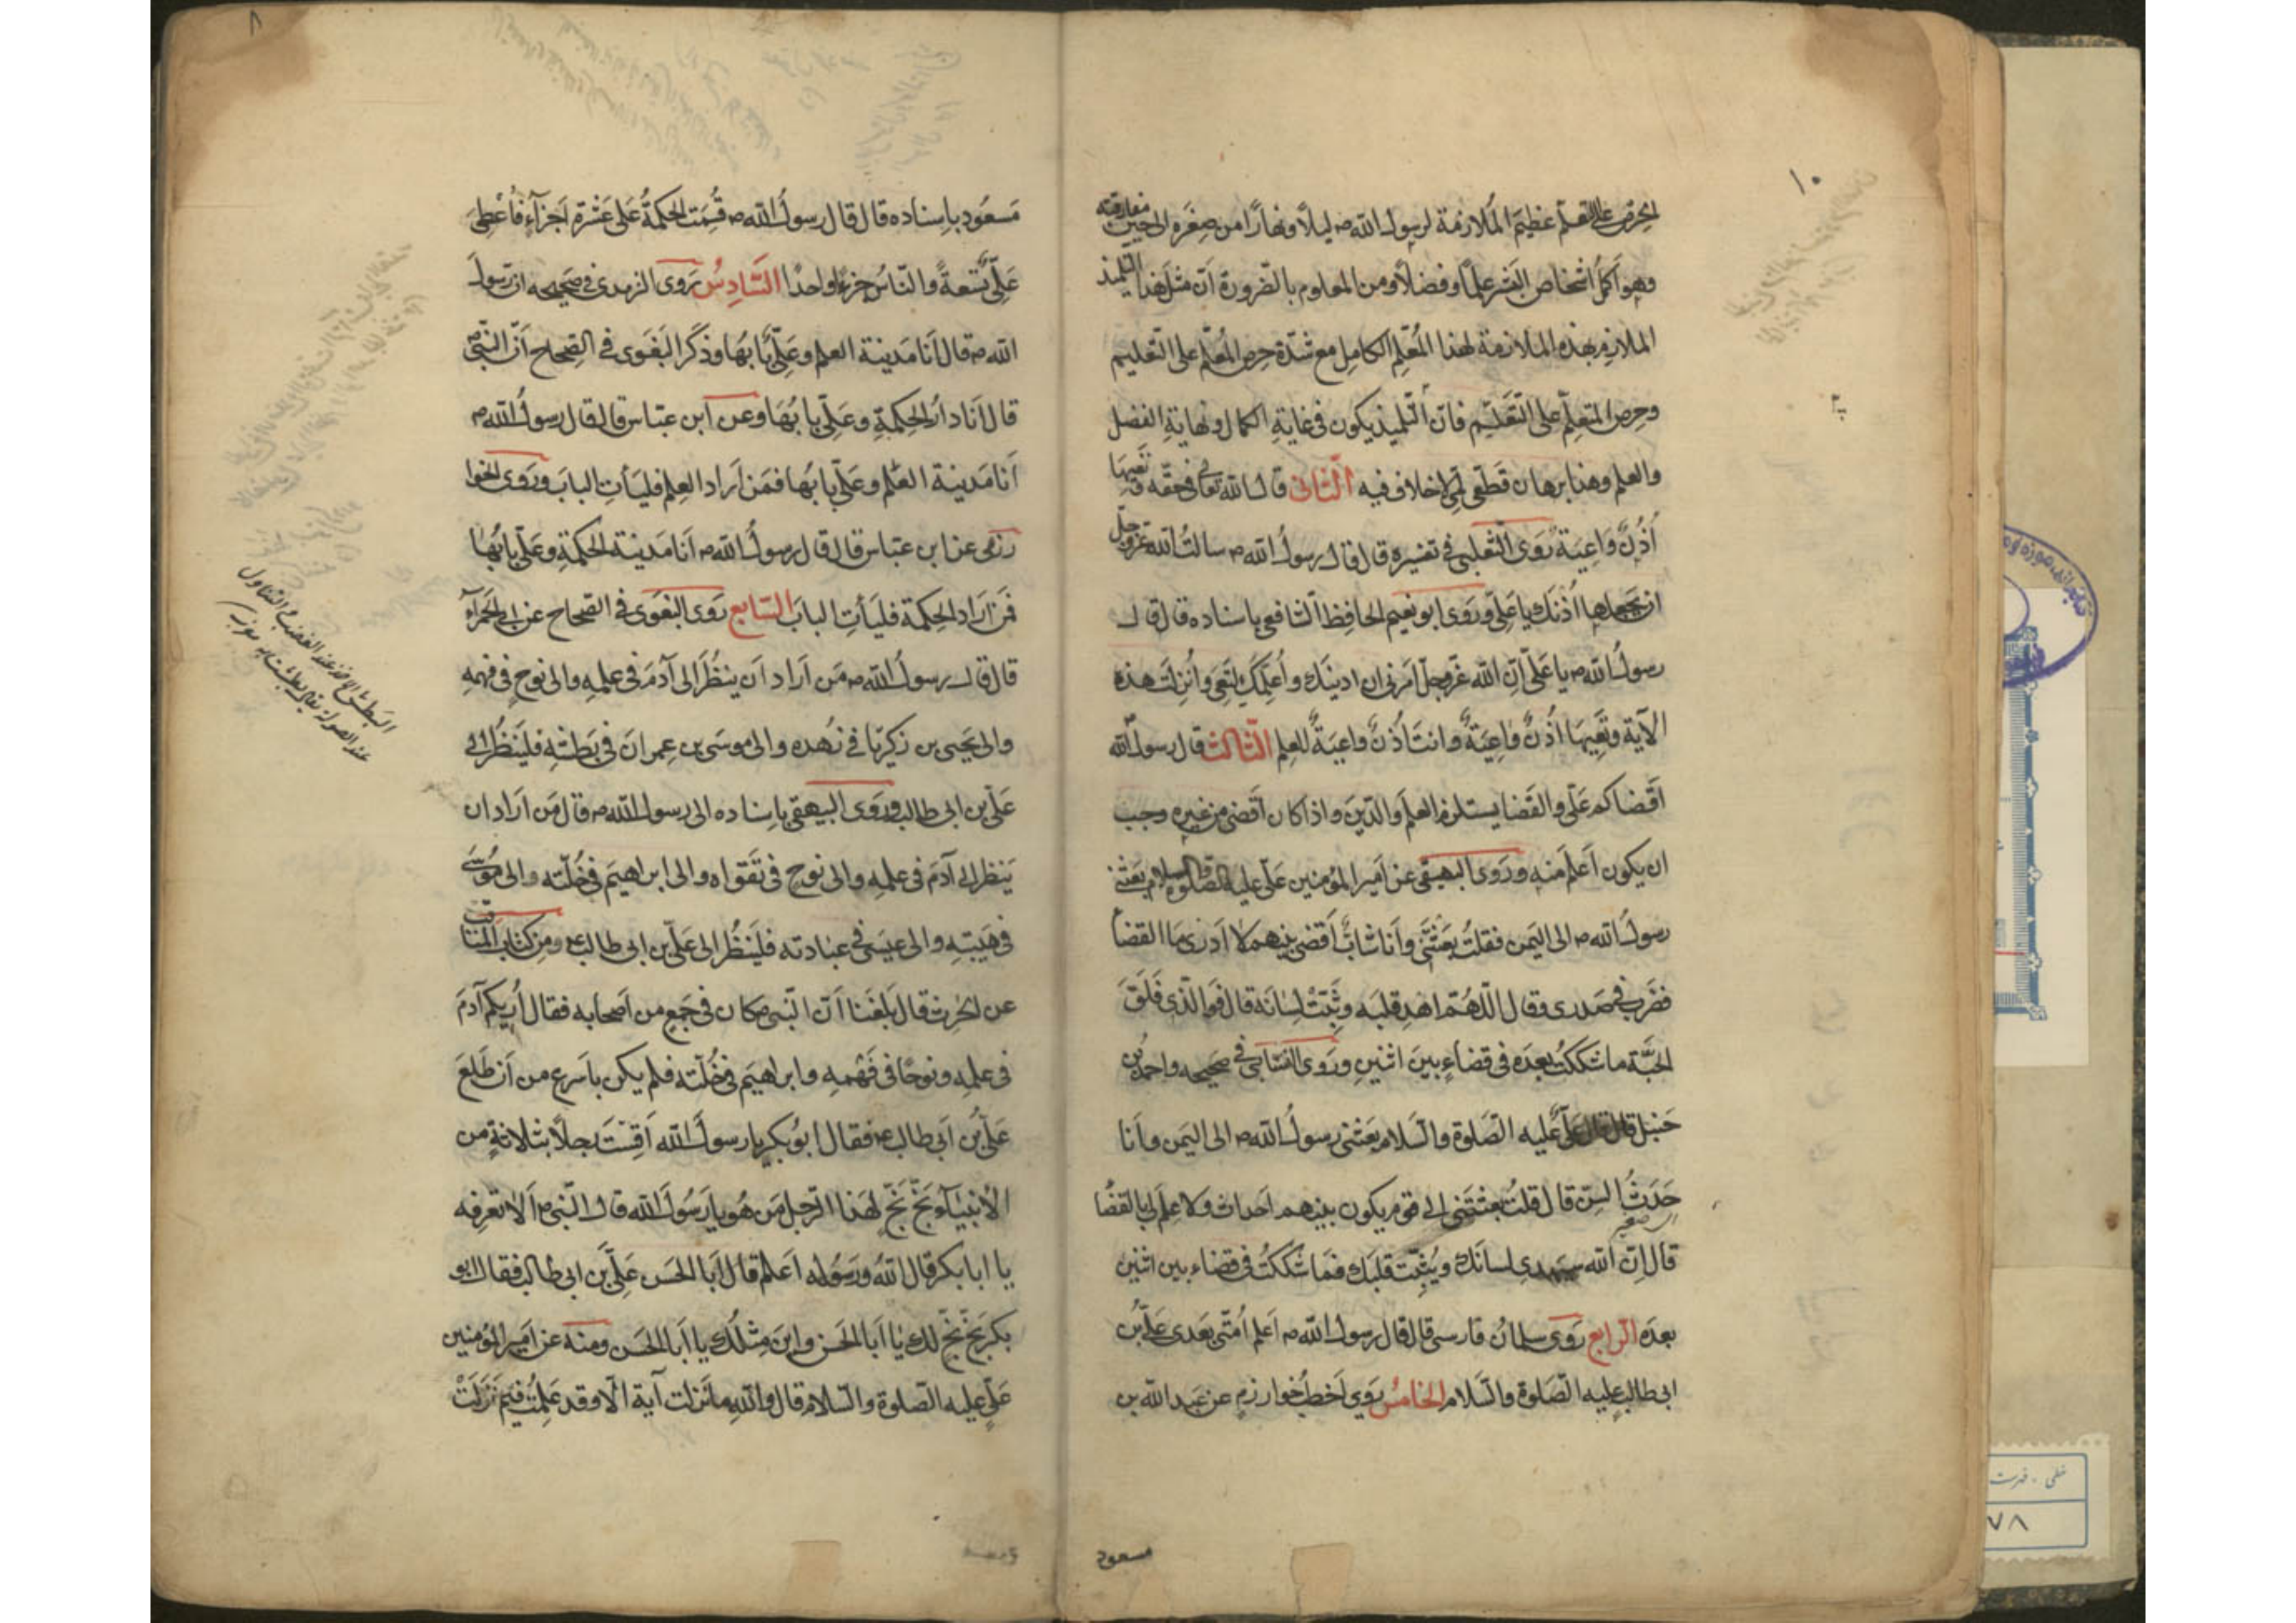 ١٠
الحرص على التعلم عظيم الملازمة لرسول الله ص ليلًا ونهارًا من صغره الى حين مفارقته
وهو اكمل اشخاص البشر علمًا وفضلًا ومن المعلوم بالضرورة ان مثل هذا التلميذ
الملازم بهذه الملازمة لهذا المعلم الكامل مع شدّة حرص المعلم على التعليم
وحرص المتعلّم على التعلّم فانّ التلميذ يكون في غاية الكمال ونهاية الفضل
والعلم وهذا برهان قطعي لمّي لا خلاف فيه الثاني قال الله تعالى في حقّه وتعيها
أُذُنٌ وَاعِيَةٌ رَوَى الثعلبي في تفسيره قال قال رسول الله ص سالت الله عزّ وجلّ
ان يجعلها اذنك يا علي وروى ابو نعيم الحافظ الشافعي باسناده قال قال
رسول الله ص يا علي انّ الله عزّ وجلّ امرني ان ادنيك واُعلّمك لتعي واُنزلت هذه
الآية وتعيها اُذُنٌ واعِيَةٌ وانت اُذُنٌ واعيةٌ للعلم الثالث قال رسول الله
اقضاكم علي والقضا يستلزم العلم والدّين واذا كان اقضى من غيره وجب
ان يكون اعلم منه وروى البيهقي عن امير المؤمنين علي عليه الصلوة والسلام بعثني
رسول الله ص الى اليمن فقلت بعثتني وانا شابّ اقضي بينهم لا ادري ما القضا
فضرب في صدري وقال اللّهمّ اهد قلبه وثبّت لسانه قال فو الّذي فلق
الحبّة ما شككت بعده في قضاءٍ بين اثنين وروى النسائي في صحيحه واحمد بن
حنبل قال قال علي عليه الصلوة والسلام بعثني رسول الله ص الى اليمن وانا
حَدَثُ السنّ قال قلت بعثتني الى قوم يكون بينهم احداث ولا علم لي بالقضا
قال انّ الله سيهدي لسانك ويثبّت قلبك فما شككت في قضاء بين اثنين
بعده الرابع روى سلمان فارسي قال قال رسول الله ص اعلم اُمّتي بعدي علي بن
ابي طالب عليه الصلوة والسلام الخامس روى اخطب خوارزم عن عبد الله بن
مسعود
٨
مسعود باسناده قال قال رسول الله ص قُسِمَت الحكمة على عشرة اجزآءٍ فاُعطي
عليٌّ تسعةً والنّاسُ جزءًا واحدًا السّادسُ روى الترمذي في صحيحه ان رسول
الله ص قال انا مدينة العلم وعليٌّ بابُها وذكر البغوي في الصحاح انّ النّبيّ ص
قال انا دار الحكمةِ وعليّ بابُها وعن ابن عبّاس قال قال رسولُ الله ص
انا مدينة العلم وعليّ بابها فمن اراد العلم فليات الباب وروى الخوا
رزمي عن ابن عباس قال قال رسولُ الله ص انا مدينة الحكمةِ وعليّ بابُها
فمن اراد الحكمة فليأتِ الباب السّابع روى البغوي في الصحاح عن ابي الحمرآء
قال قال رسول الله ص من اراد ان ينظر الى آدم في علمه والى نوحٍ في فهمهِ
والى يحيى بن زكريّا في زهده والى موسى بن عمران في بطشه فلينظر الى
علي بن ابي طالب وروى البيهقي باسناده الى رسول الله ص قال من اراد ان
ينظر الى آدم في علمه والى نوح في تقواه والى ابراهيم في خُلّته والى موسى
في هيبتهِ والى عيسى في عبادته فلينظُر الى علي بن ابي طالب ع ومن كتاب المناقب
عن الحرث قال بلغنا انّ النّبي ص كان في جمعٍ من اصحابه فقال اُريكم آدم
في علمه ونوحًا في فهمه وابراهيم في خُلّته فلم يكن باسرع من ان طلع
عليُّ بن ابي طالب ع فقال ابو بكر يا رسول الله اَقِسْتَ رجلًا بثلاثةٍ من
الانبيآء بَخٍّ بَخٍّ لهذا الرجل من هو يا رسول الله قال النّبي ص الا تعرفه
يا ابا بكر قال الله ورسوله اعلم قال ابا الحسن علي بن ابي طالب فقال ابو
بكر بخٍّ بخٍّ لك يا ابا الحسن واين مثلك يا ابا الحسن ومنه عن امير المؤمنين
علي عليه الصلوة والسلام قال والله ما نزلت آية الّا وقد علمت فيم نزلت
البطش الاخذ عند الغضب والتناول
عند الصولة
خطي - فهرست
٧٨